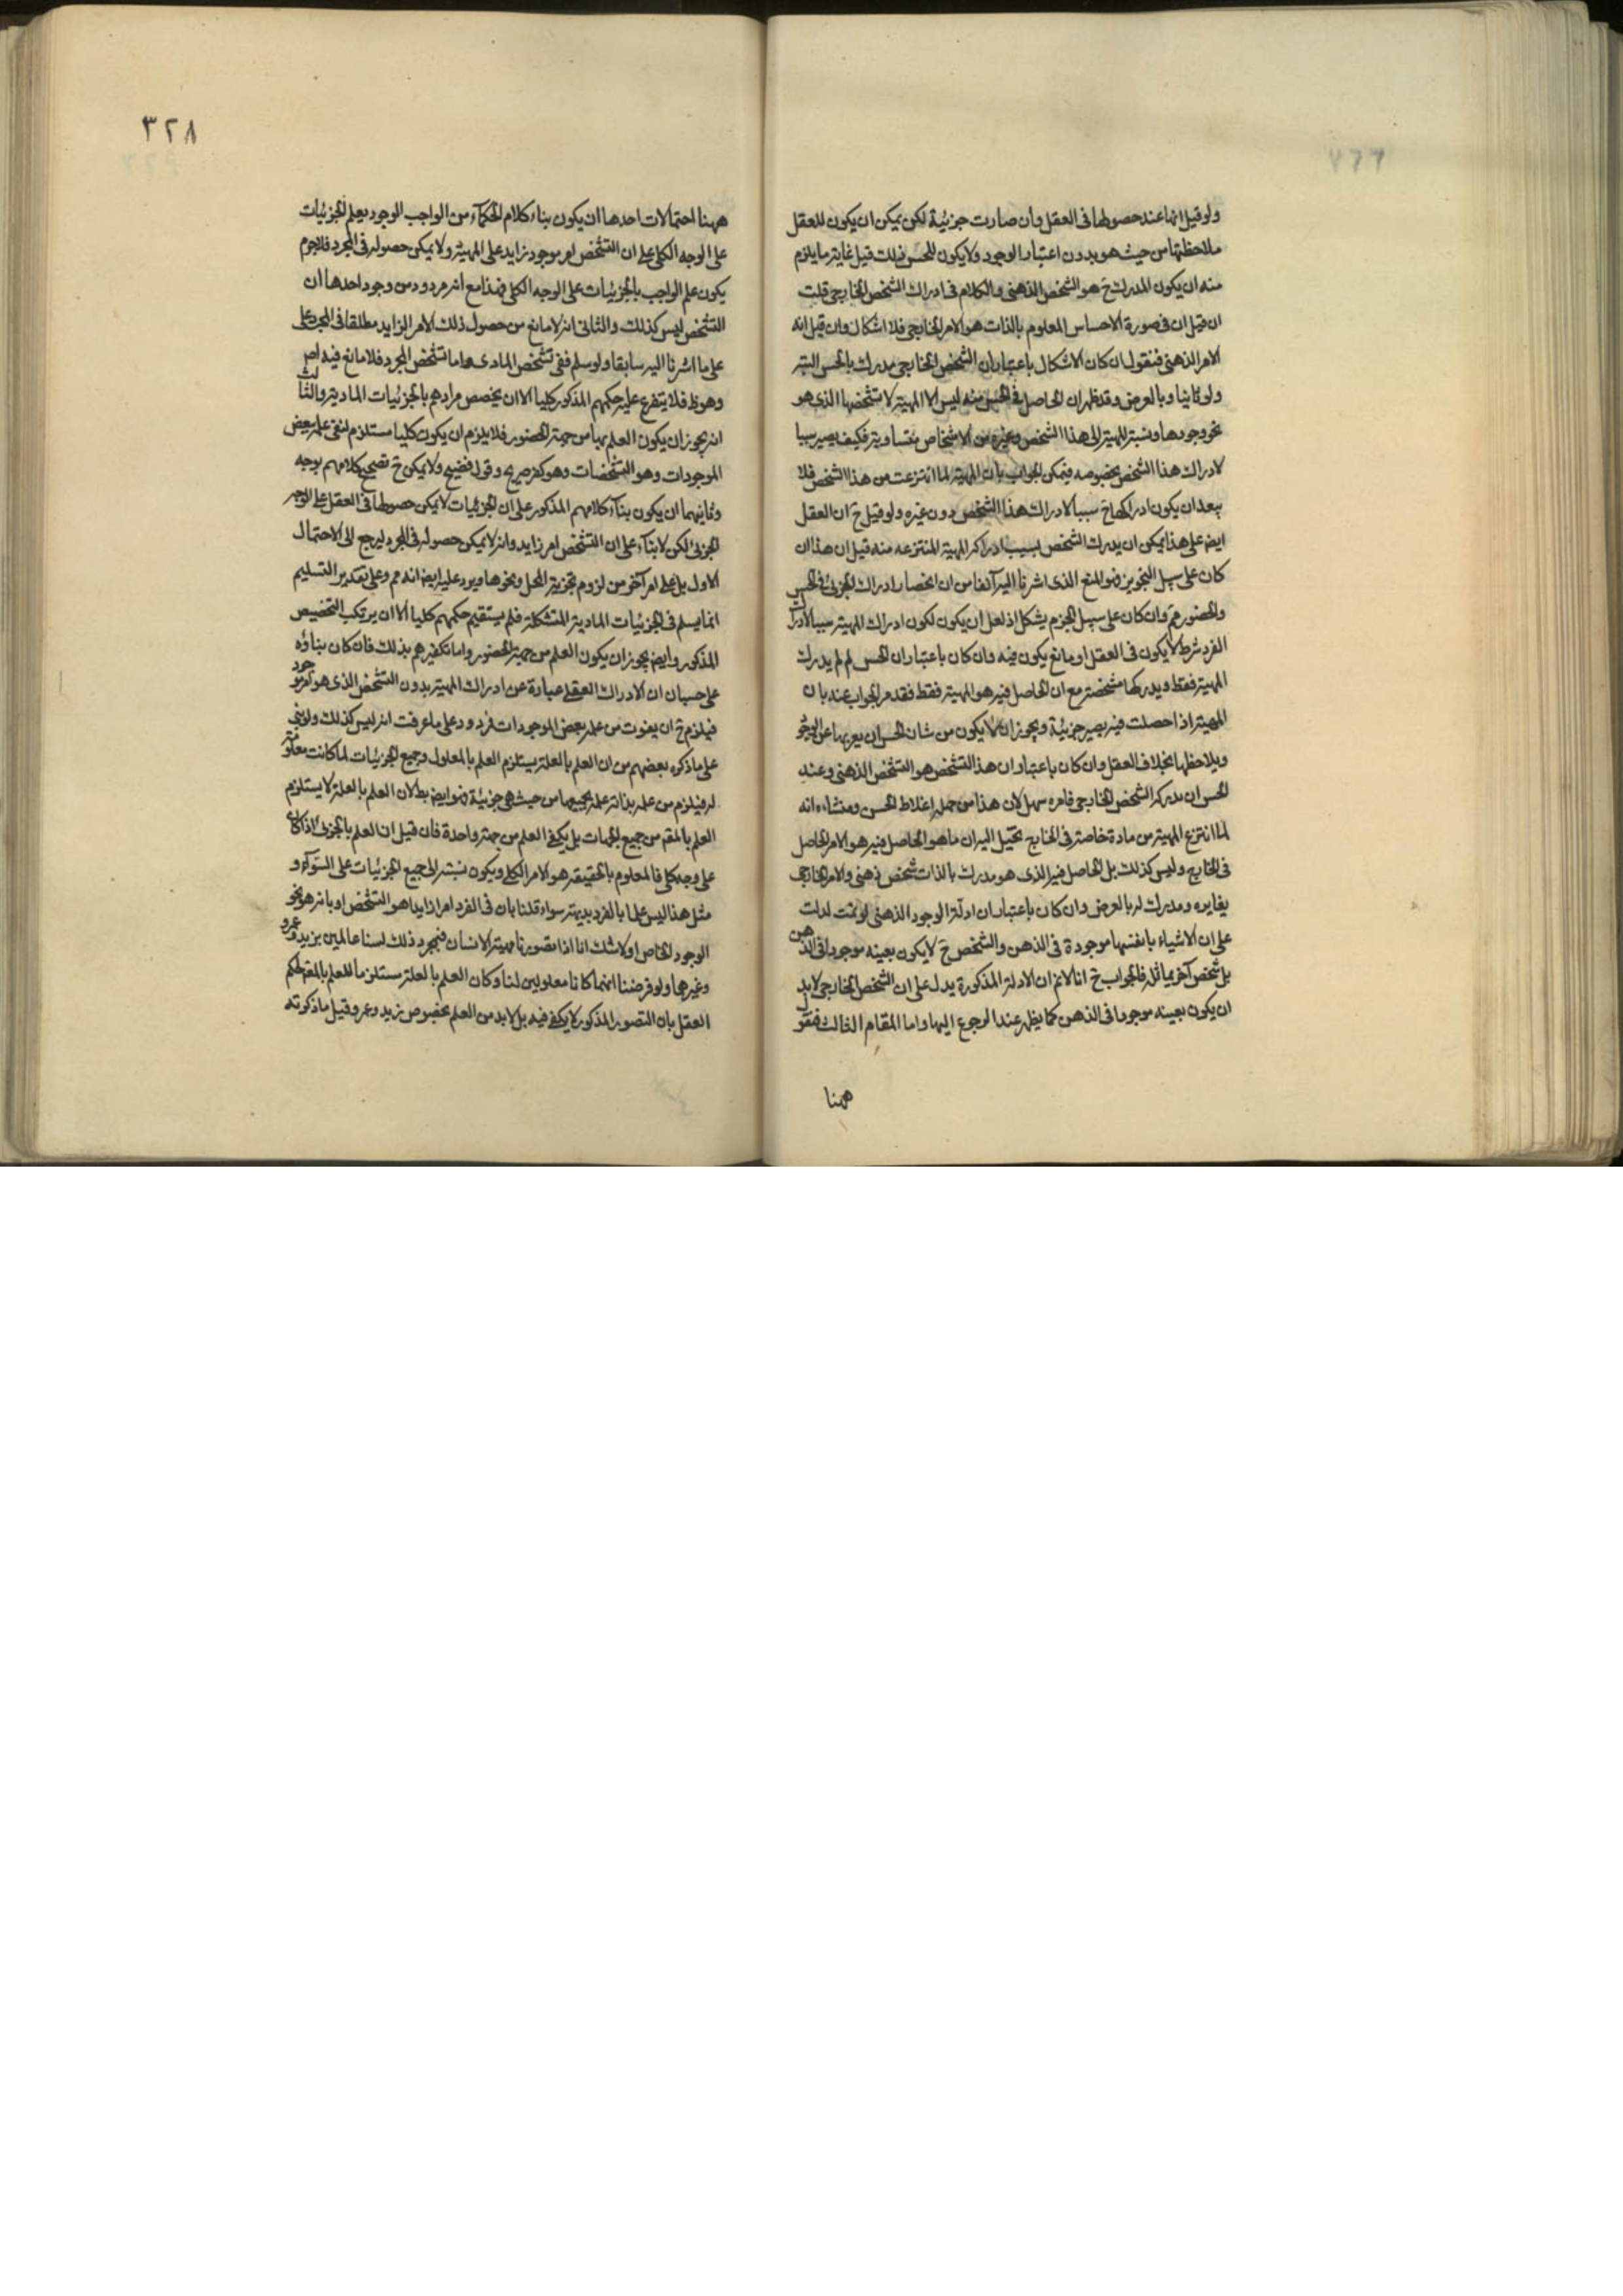 ولو قيل انها عند حصولها فى العقل وان صارت جزئية لكن يمكن ان يكون للعقل
ملاحظتها من حيث هو بدون اعتبار الوجود ولا يكون للحس ذلك قيل غاية ما يلزم
منه ان يكون المدرك ح هو الشخص الذهنى والكلام فى ادراك الشخص الخارجى قلت
ان قيل ان فى صورة الاحساس المعلوم بالذات هو الامر الخارجى فلا اشكال وان قيل انه
الامر الذهنى فنقول ان كان الاشكال باعتبار ان الشخص الخارجى مدرك بالحس البتة
ولو ثانيا وبالعرض وقد ظهر ان الحاصل فى الحس منه ليس الا المهية لا تشخصها الذى هو
نحو وجودها ونسبة المهية الى هذا الشخص وغيره من الاشخاص متساوية فكيف يصير سببا
لادراك هذا الشخص بخصوصه فيمكن الجواب بان المهية لما انتزعت من هذا الشخص فلا
بعد ان يكون ادراكها ح سببا لادراك هذا الشخص دون غيره ولو قيل ح ان العقل
ايض على هذا يمكن ان يدرك الشخص بسبب ادراكه المهية المنتزعه منه قيل ان هذا ان
كان على سبيل التجويز فهو المنع الذى اشرنا اليه آنفا من ان انحصار ادراك الجزئى فى الحس
والحضور مم وان كان على سبيل الجزم يشكل اذ لعل ان يكون لكون ادراك المهية سببا لادراك
الفرد شرط لا يكون فى العقل او مانع يكون فيه وان كان باعتبار ان الحس لم لم يدرك
المهية فقط ويدركها مشخصة مع ان الحاصل فيه هو المهية فقط فقد مر الجواب عنه بان
المهية اذا حصلت فيه يصير جزئية ويجوز ان لا يكون من شان الحس ان يعريها عن الوجود
ويلاحظها بخلاف العقل وان كان باعتبار ان هذا التشخص هو التشخص الذهنى وعند
الحس ان يدركه الشخص الخارجى فامره سهل لان هذا من جملة اغلاط الحس ومنشاءه انه
لما انتزع المهية من مادة خاصة فى الخارج تخيل اليه ان ما هو الحاصل فيه هو الامر الحاصل
فى الخارج وليس كذلك بل الحاصل فيه الذى هو مدرك بالذات شخص ذهنى والامر الخارجى
يغايره ومدرك له بالعرض وان كان باعتبار ان ادلة الوجود الذهنى لو تمت لدلت
على ان الاشياء بانفسها موجودة فى الذهن والشخص ح لا يكون بعينه موجودا فى الذهن
بل شخص آخر يماثله فالجواب ح انا لا نم ان الادلة المذكورة يدل على ان الشخص الخارجى لابد
ان يكون بعينه موجودا فى الذهن كما يظهر عند الرجوع اليها واما المقام الثالث فنقول
ههنا
٣٢٨
ههنا احتمالات احدها ان يكون بناء كلام الحكماء من الواجب الوجود يعلم الجزئيات
على الوجه الكلى على ان التشخص امر موجود زايد على المهية ولا يمكن حصوله فى المجرد فلا جرم
يكون علم الواجب بالجزئيات على الوجه الكلى فهذا مع انه مردود من وجوه احدها ان
التشخص ليس كذلك والثانى انه لا مانع من حصول ذلك الامر الزايد مطلقا فى المجرد على
على ما اشرنا اليه سابقا ولو سلم ففى تشخص المادى واما تشخص المجرد فلا مانع فيه اص
وهو ظ فلا يتفرع عليه حكمهم المذكور كليا الا ان يخصص مرادهم بالجزئيات المادية والثالث
انه يجوز ان يكون العلم بها من جهة الحضور فلا يلزم ان يكون كليا مستلزم لنفى علمه ببعض
الموجودات وهو التشخصات وهو كفر صريح وقول فضيح ولا يمكن ح تصحيح كلامهم بوجه
وثانيهما ان يكون بناء كلامهم المذكور على ان الجزئيات لا يمكن حصولها فى العقل على الوجه
الجزئى لكن لا بناء على ان التشخص امر زايد وانه لا يمكن حصوله فى المجرد ليرجع الى الاحتمال
الاول بل على امر آخر من لزوم تجزية المحل ونحوها ويرد عليه ايض انه مم وعلى تقدير التسليم
انما يسلم فى الجزئيات المادية المتشكلة فلم يستقيم حكمهم كليا الا ان يرتكب التخصيص
المذكور وايض يجوز ان يكون العلم من جهة الحضور واما تكفيرهم بذلك فان كان بناؤه
على حسبان ان الادراك العقلى عبارة عن ادراك المهية بدون التشخص الذى هو امر موجود
فيلزم ح ان يفوت من علمه بعض الموجودات فردود على ما عرفت انه ليس كذلك ولو بنى
على ما ذكره بعضهم من ان العلم بالعلة يستلزم العلم بالمعلول وجميع الجزئيات لما كانت معلولة
له فيلزم من علمه بذاته علمه بجميعها من حيث هى جزئية فهو ايض بطلان العلم بالعلة لا يستلزم
العلم بالمقم من جميع الجهات بل يكفى العلم من جهة واحدة فان قيل ان العلم بالجزئى اذا كان
على وجه كلى فالمعلوم بالحقيقة هو الامر الكلى ويكون نسبته الى جميع الجزئيات على السواء و
مثل هذا ليس علما بالفرد بديهة سواء قلنا بان فى الفرد امرا زايدا هو التشخص او بانه هو نحو
الوجود الخاص او لا شك انا اذا تصورنا مهية الانسان فبمجرد ذلك لسنا عالمين بزيد وعمرو
وغيرهما ولو فرضنا انهما كانا معلولين لنا وكان العلم بالعلة مستلزما للعلم بالمقم لحكم
العقل بان التصور المذكور لا يكفى فيه بل لابد من العلم بخصوص زيد وعمرو قيل ما ذكرته